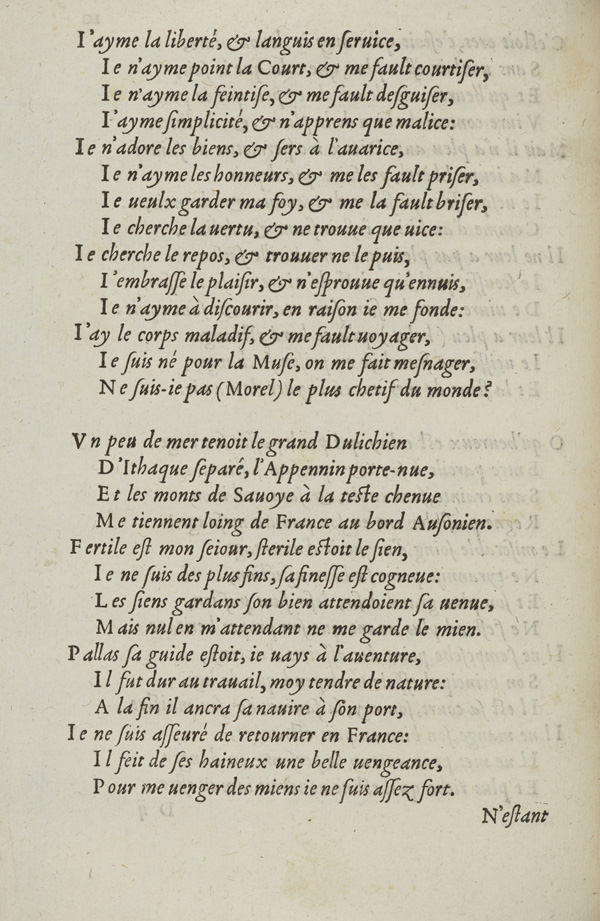 I'ayme la liberté, & languis en ſeruice,
Ie n'ayme point la Court, & me fault courtiſer,
Ie n'ayme la feintiſe, & me fault deſguiſer,
I'ayme ſimplicité, & n'apprens que malice:
Ie n'adore les biens, & ſers à l'auarice,
Ie n'ayme les honneurs, & me les fault priſer,
Ie ueulx garder ma foy, & me la fault briſer,
Ie cherche la uertu, & ne trouue que uice:
Ie cherche le repos, & trouuer ne le puis,
I'embraſſe le plaiſir, & n'eſprouue qu'ennuis,
Ie n'ayme à diſcourir, en raiſon ie me fonde:
I'ay le corps maladif, & me fault uoyager,
Ie ſuis né pour la Muſe, on me fait meſnager,
Ne ſuis-ie pas (Morel) le plus chetif du monde?
Vn peu de mer tenoit le grand Dulichien
D'Ithaque ſeparé, l'Appennin porte-nue,
Et les monts de Sauoye à la teſte chenue
Me tiennent loing de France au bord Auſonien.
Fertile eſt mon ſeiour, ſterile eſtoit le ſien,
Ie ne ſuis des plus fins, ſa fineſſe eſt cogneue:
Les ſiens gardans ſon bien attendoient ſa uenue,
Mais nul en m'attendant ne me garde le mien.
Pallas ſa guide eſtoit, ie uays à l'auenture,
Il fut dur au trauail, moy tendre de nature:
A la fin il ancra ſa nauire à ſon port,
Ie ne ſuis aſſeuré de retourner en France:
Il feit de ſes haineux une belle uengeance,
Pour me uenger des miens ie ne ſuis aſſez fort.
N'eſtant